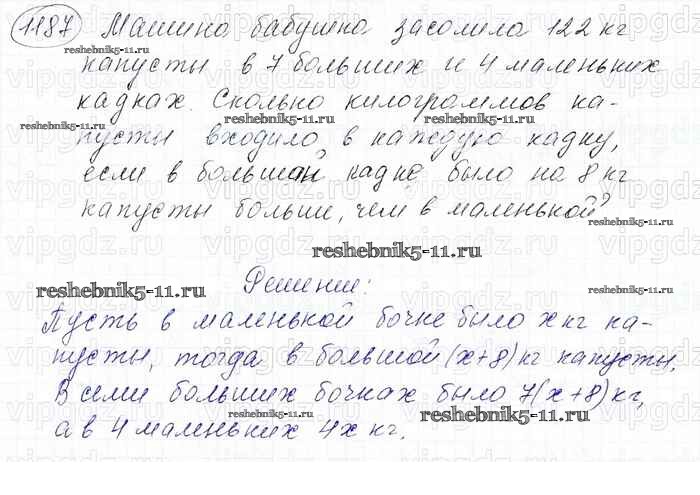 1187 Машина бабушка засолила 122 кг
reshebnik5-11.ru
капусты в 7 больших и 4 маленьких
кадках. Сколько килограммов ка-
reshebnik5-11.ru
reshebnik5-11.ru
пусты входило в каждую кадку,
если в большой кадке было на 8 кг
капусты больше, чем в маленькой?
reshebnik5-11.ru
reshebnik5-11.ru
Решение:
reshebnik5-11.ru
Пусть в маленькой бочке было x кг ка-
reshebnik5-11.ru
пусты, тогда в большой (x+8) кг капусты.
В семи больших бочках было 7(x+8) кг,
reshebnik5-11.ru
reshebnik5-11.ru
а в 4 маленьких 4x кг.